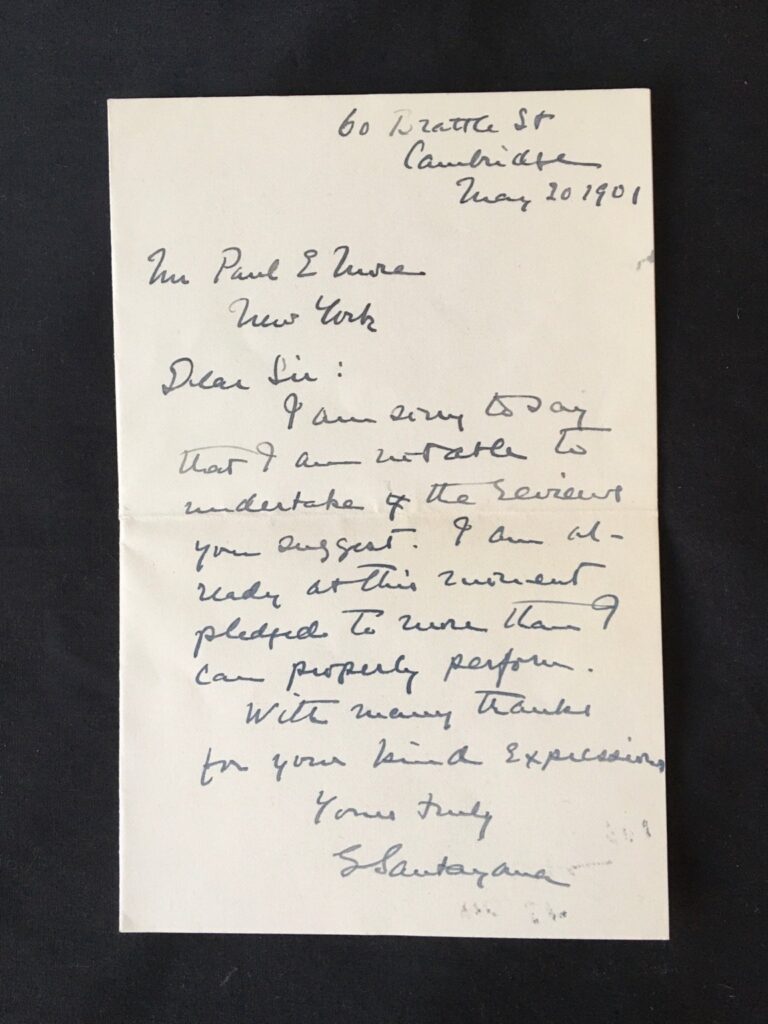 60 Brattle St
Cambridge
May 20 1901
Mr Paul E More
New York
Dear Sir:
I am sorry to say
that I am not able to
undertake the reviews
you suggest. I am al-
ready at this moment
pledged to more than I
can properly perform.
With many thanks
for your kind expressions
Yours truly
G Santayana